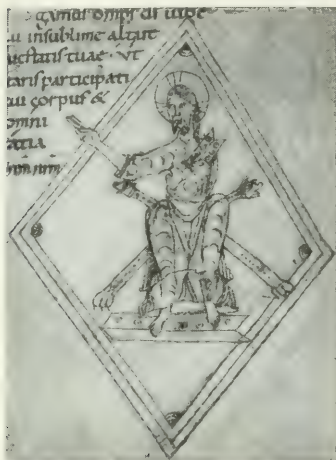 gamus omps ds iube
ui insublime altare
iestatis tuae · ut
taris participati
tui corpus &
omni
atia